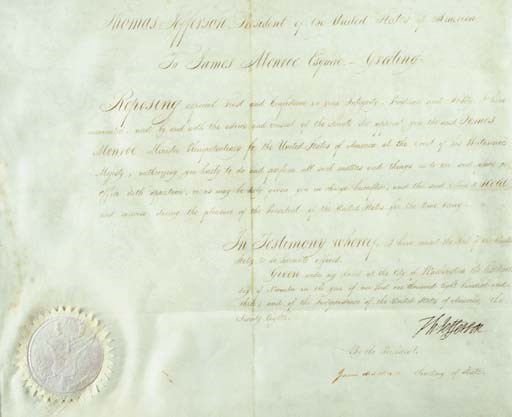 Thomas Jefferson, President of the United States of America
To James Monroe Esquire - Greeting
Reposing especial trust and Confidence in your Integrity, Prudence and Ability I have
nominated, and by and with the advice and consent of the Senate do appoint you the said James
Monroe, Minister Plenipotentiary for the United States of America at the Court of his Britannic
Majesty, authorizing you hereby to do and perform all such matters and things as to the said place or
Office doth appertain, or as may be duly given you in charge hereafter, and the said Office to Hold
and exercise during the pleasure of the President of the United States for the time being
In Testimony whereof, I have caused the Seal of the United
States to be hereunto affixed.
Given under my hand at the City of Washington the
day of in the year of our Lord one thousand eight hundred and
and of the Independence of the United States of America, the
Twenty Eighth
Th: Jefferson
By the President,
James Madison Secretary of State